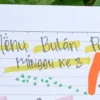 Menu Bulan
MINGGU KE 3